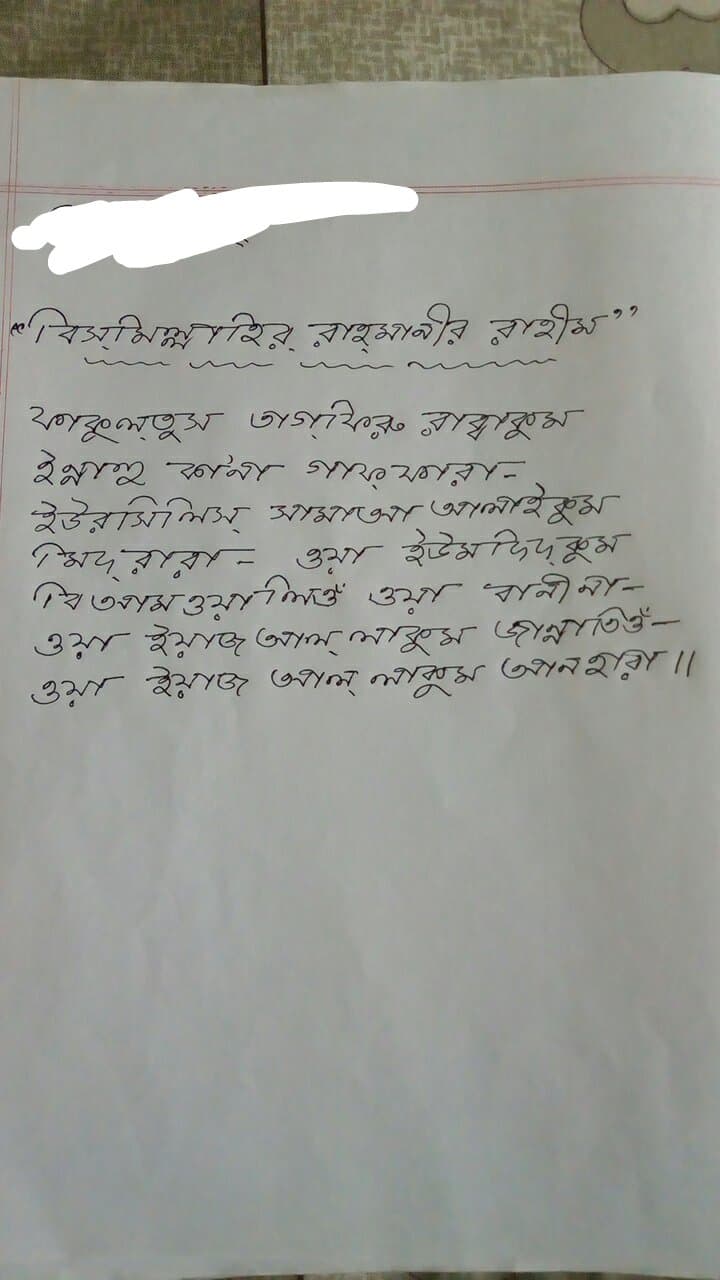 “বিস্‌মিল্লাহির্ রাহ্‌মানীর রাহীম”
ফাকুল্‌তুস তাগ্‌ফিরু রাব্বাকুম
ইন্নাহু কা'না গাফ্‌ফারা-
ইউরসিলিস্ সামাআ আলাইকুম
মিদ্‌রারা- ওয়া ইউমদিদ্‌কুম
বি আমওয়ালিওঁ ওয়া বানীনা-
ওয়া ইয়াজ আল্ লাকুম জান্নাতিওঁ-
ওয়া ইয়াজ আল্ লাকুম আনহারা॥